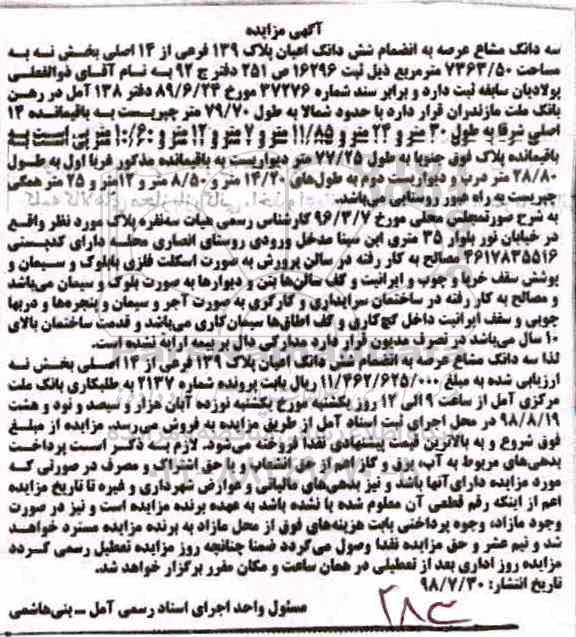 آگهی مزایده
سه دانگ مشاع عرصه به انضمام شش دانگ اعیان پلاک ۱۳۹ فرعی از ۱۴ اصلی بخش نه به
مساحت ۷۳۶۳/۵۰ مترمربع ذیل ثبت ۱۶۲۹۶ ص ۲۵۱ دفتر ج ۹۲ به نام آقای ذوالفعلی
پولادیان سابقه ثبت دارد و برابر سند شماره ۳۷۲۷۶ مورخ ۸۹/۶/۲۴ دفتر ۱۳۸ آمل در رهن
بانک ملت مازندران قرار دارد با حدود شمالا به طول ۷۹/۷۰ متر چپریست به باقیمانده ۱۴
اصلی شرقا به طول ۳۰ متر و ۲۴ متر و ۱۱/۸۵ متر و ۷ متر و ۱۲ متر و ۱۰/۶۰ متر پی است به
باقیمانده پلاک فوق جنوبا به طول ۷۷/۲۵ متر دیواریست به باقیمانده مذکور غربا اول به طول
۲۸/۸۰ متر درب و دیواریست دوم به طول‌های ۱۴/۲۰ متر و ۸/۵۰ متر و ۱۲متر و ۲۵ متر همگی
چپریست به راه عبور روستایی می‌باشد.
به شرح صورتمجلس محلی مورخ ۹۶/۳/۷ کارشناس رسمی هیات سه‌نفره پلاک مورد نظر واقع
در خیابان نور بلوار ۳۵ متری ابن سینا مدخل ورودی روستای انصاری محله دارای کدپستی
۴۶۱۷۸۳۵۵۱۶ مصالح به کار رفته در سالن پرورش به صورت اسکلت فلزی بابلوک و سیمان و
پوشش سقف خرپا و چوب و ایرانیت و کف سالن‌ها بتن و دیوارها به صورت بلوک و سیمان می‌باشد
و مصالح به کار رفته در ساختمان سرایداری و کارگری به صورت آجر و سیمان و پنجره‌ها و دربها
چوبی و سقف ایرانیت داخل گچ‌کاری و کف اطاق‌ها سیمان‌کاری می‌باشد و قدمت ساختمان بالای
۱۰ سال می‌باشد در تصرف مدیون قرار دارد مدارکی دال بر بیمه ارایه نشده است.
لذا سه دانگ مشاع عرصه به انضمام شش دانگ اعیان پلاک ۱۳۹ فرعی از ۱۴ اصلی بخش نه
ارزیابی شده به مبلغ ۱۱/۴۶۲/۶۲۵/۰۰۰ ریال بابت پرونده شماره ۲۱۳۷ به طلبکاری بانک ملت
مرکزی آمل از ساعت ۹ الی ۱۲ روز یکشنبه مورخ یکشنبه نوزده آبان هزار و سیصد و نود و هشت
۹۸/۸/۱۹ در محل اجرای ثبت اسناد آمل از طریق مزایده به فروش می‌رسد. مزایده از مبلغ
فوق شروع و به بالاترین قیمت پیشنهادی نقدا فروخته می‌شود. لازم به ذکر است پرداخت
بدهی‌های مربوط به آب، برق و گاز اعم از حق انشعاب و یا حق اشتراک و مصرف در صورتی که
مورد مزایده دارای آنها باشد و نیز بدهی‌های مالیاتی و عوارض شهرداری و غیره تا تاریخ مزایده
اعم از اینکه رقم قطعی آن معلوم شده یا نشده باشد به عهده برنده مزایده است و نیز در صورت
وجود مازاد، وجوه پرداختی بابت هزینه‌های فوق از محل مازاد به برنده مزایده مسترد خواهد
شد و نیم عشر و حق مزایده نقدا وصول می‌گردد ضمنا چنانچه روز مزایده تعطیل رسمی گردد
مزایده روز اداری بعد از تعطیلی در همان ساعت و مکان مقرر برگزار خواهد شد.
تاریخ انتشار: ۹۸/۷/۳۰
مسئول واحد اجرای اسناد رسمی آمل ــ بنی‌هاشمی